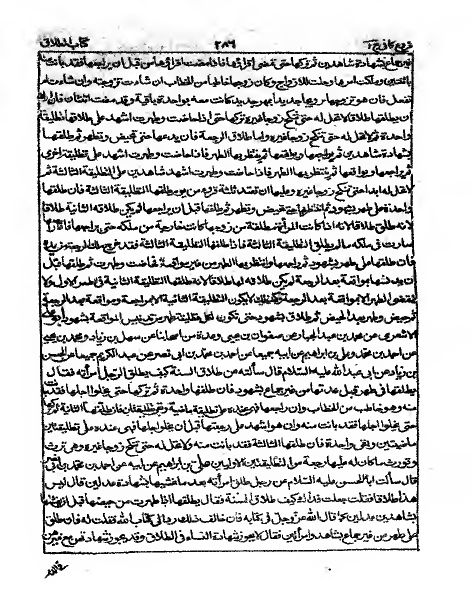 فروع كافي ج٢ ٢٨٦ كتاب الطلاق
غير جماع بشهادة شاهدين ثم تركها حتى تمضى اقراؤها فاذا مضت اقراؤها من قبل ان يراجعها فقد بانت منه
بائنتين وملكت امرها وحلت للازواج وكان زوجها خاطبا من الخطاب ان شاءت تزوجته وان شاءت لم
تفعل فان هو تزوجها تزويجا جديدا بمهر جديد كانت معه بواحدة باقية وقد مضت اثنتان فان اراد
ان يطلقها طلاقا لا تحل له حتى تنكح زوجا غيره تركها حتى اذا حاضت وطهرت اشهد على طلاقها تطليقة
واحدة ثم لا تحل له حتى تنكح زوجا غيره واما طلاق الرجعة فان يدعها حتى تحيض وتطهر ثم يطلقها
بشهادة شاهدين ثم يراجعها ويواقعها ثم ينتظر بها الطهر فاذا حاضت وطهرت اشهد على تطليقة اخرى
ثم يراجعها ويواقعها ثم ينتظر بها الطهر فاذا حاضت وطهرت اشهد شاهدين على التطليقة الثالثة ثم
لا تحل له ابدا حتى تنكح زوجا غيره وعليها ان تعتد ثلثة قروء من يوم طلقها التطليقة الثالثة فان طلقها
واحدة على طهر بشهود ثم انتظر بها حتى تحيض وتطهر ثم طلقها قبل ان يراجعها لم يكن طلاقه الثانية طلاقا
لانه طلق طالقا لانه اذا كانت المرأة مطلقة من زوجها كانت خارجة من ملكه حتى يراجعها فاذا راجعها
صارت في ملكه ما لم يطلق التطليقة الثالثة فاذا طلقها التطليقة الثالثة فقد خرج ملك الرجعة من يده
فان طلقها على طهر بشهود ثم راجعها وانتظر بها الطهر من غير مواقعة فحاضت وطهرت ثم طلقها قبل
ان يدنسها بمواقعة بعد الرجعة لم يكن طلاقه لها طلاقا لانه طلقها التطليقة الثانية في طهر الاولى ولا
ينقضى الطهر الا بمواقعة بعد الرجعة وكذلك لا تكون التطليقة الثالثة الا بمراجعة ومواقعة بعد الرجعة
ثم حيض وطهر بعد الحيض ثم طلاق بشهود حتى تكون لكل تطليقة طهر من تدنيس المواقعة بشهود ابو علي
الاشعرى عن محمد بن عبد الجبار عن صفوان بن يحيى وعدة من اصحابنا عن سهل بن زياد ومحمد بن يحيى
عن احمد بن محمد وعلي بن ابراهيم عن ابيه جميعا عن احمد بن محمد بن ابى نصر عن عبد الكريم جميعا عن الحسن
بن زياد عن ابى عبد الله عليه السلام قال سألته عن طلاق السنة كيف يطلق الرجل امرأته فقال
يطلقها في طهر قبل عدتها من غير جماع بشهود فان طلقها واحدة ثم تركها حتى يخلوا اجلها فقد بانت
منه وهو خاطب من الخطاب وان راجعها فهى عنده على تطليقة ماضية وبقى تطليقتان فان طلقها الثانية ثم تركها
حتى يخلوا اجلها فقد بانت منه وان هو اشهد على رجعتها قبل ان يخلوا اجلها فهى عنده على تطليقتين
ماضيتين وبقى واحدة فان طلقها الثالثة فقد بانت منه ولا تحل له حتى تنكح زوجا غيره وهى ترث
وتورث ما كان له عليها رجعة من التطليقتين الاولتين علي بن ابراهيم عن ابيه عن احمد بن محمد بن ابى نصر
قال سألت ابا الحسن عليه السلام عن رجل طلق امرأته بعد ما غشيها بشهادة عدلين قال ليس
هذا طلاقا فقلت جعلت فداك كيف طلاق السنة فقال يطلقها اذا طهرت من حيضها قبل ان يغشاها
بشاهدين عدلين كما قال الله عز وجل في كتابه فان خالف ذلك رد الى كتاب الله فقلت له فان طلق
على طهر من غير جماع بشاهد وامرأتين فقال لا يجوز شهادة النساء في الطلاق وقد يجوز شهادتهن مع غيرهن